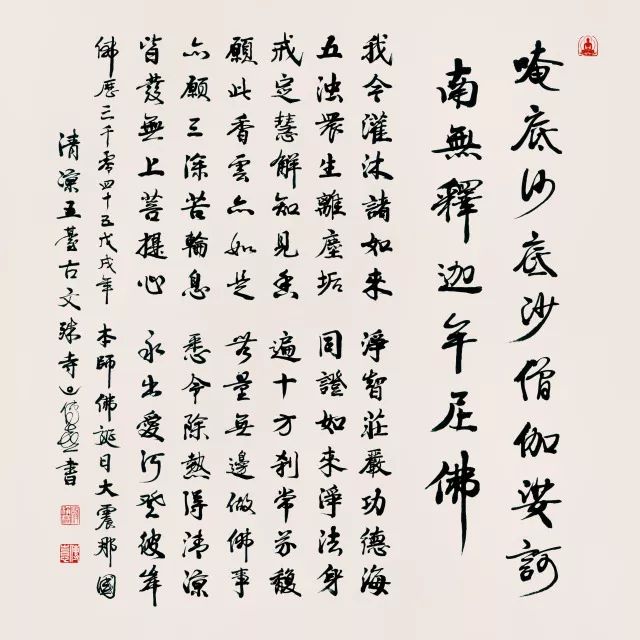 唵底沙底沙僧伽娑訶
南無釋迦牟尼佛
我今灌沐諸如來 淨智莊嚴功德海
五浊眾生離塵垢 同證如來淨法身
戒定慧解知見香 遍十方刹常芬馥
願此香雲亦如是 無量無邊做佛事
亦願三涂苦輪息 悉令除熱得清涼
皆發無上菩提心 永出愛河登彼岸
佛歷三千零四十五戊戌年 本師佛誕日大震那國
清涼五臺古文殊寺 書